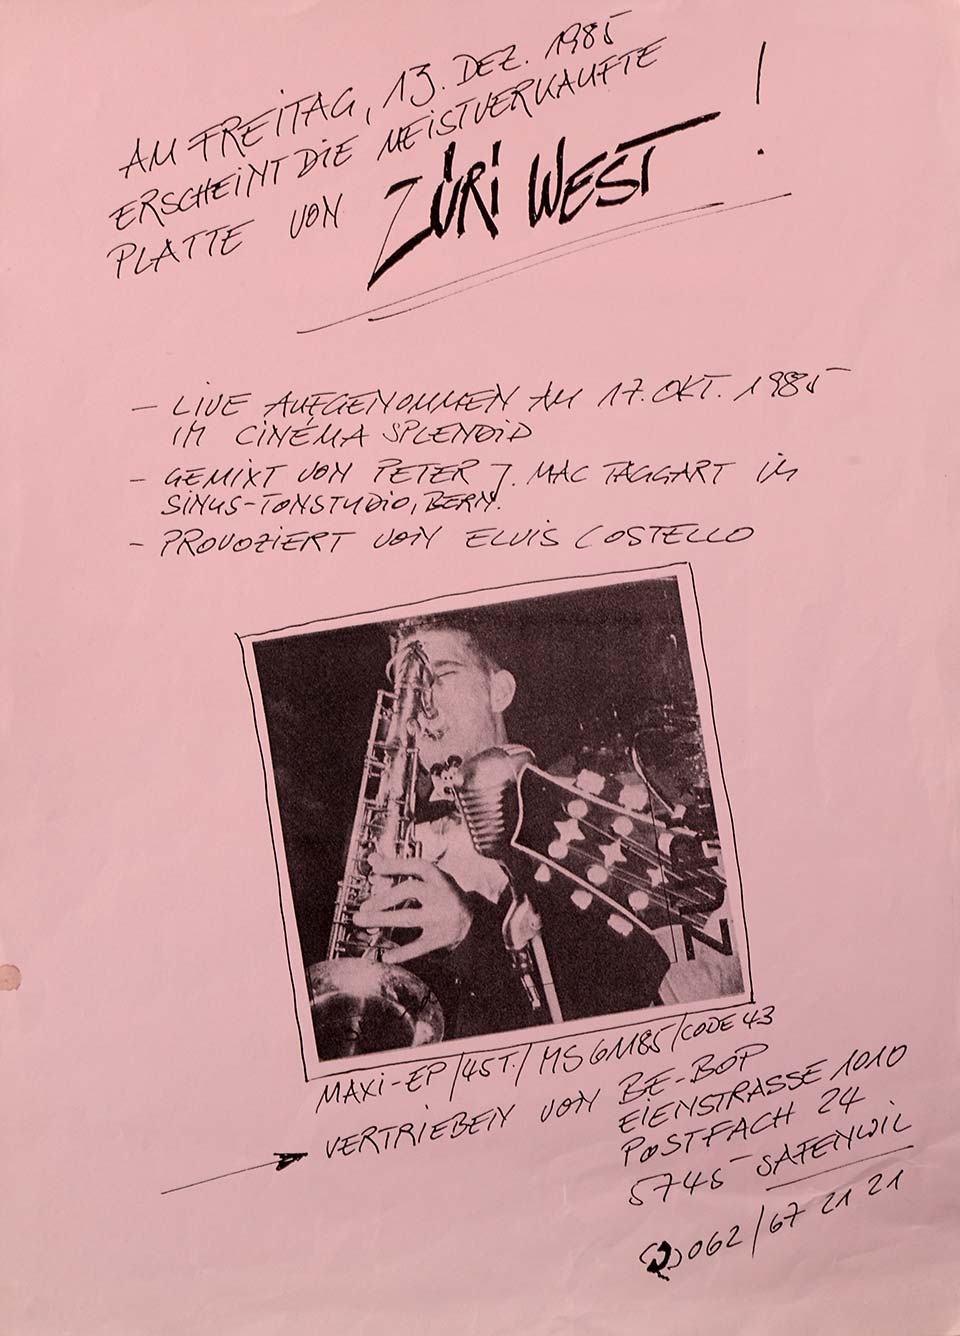 AM FREITAG, 13. DEZ. 1985
ERSCHEINT DIE MEISTVERKAUFTE
PLATTE VON ZÜRI WEST !
– LIVE AUFGENOMMEN AM 17. OKT. 1985
IM CINÉMA SPLENDID
– GEMIXT VON PETER J. MAC TAGGART IM
SINUS-TONSTUDIO, BERN.
– PROVOZIERT VON ELVIS COSTELLO
MAXI-EP/45T./MS 61185/CODE 43
VERTRIEBEN VON BE-BOP
EIENSTRASSE 1010
POSTFACH 24
5745 SAFENWIL
062/67 21 21